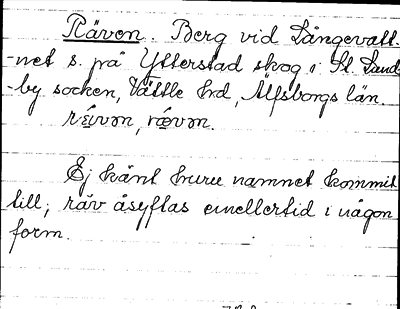 Räven. Berg vid Långevatt-
-net s. på Ytterstad skog i St. Lund-
-by socken, Vättle hd, Älfsborgs län.
Ej känt huru namnet kommit
till; räv åsyftas emellertid i någon
form.